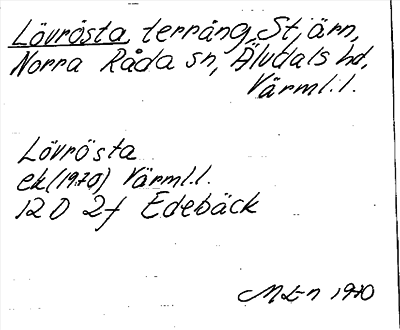 Lövrösta, terräng, Stjärn,
Norra Råda sn, Älvdals hd,
Värml. l.
Lövrösta
ek (1970) Värml. l.
12 D 2f Edebäck
M L-n 1970